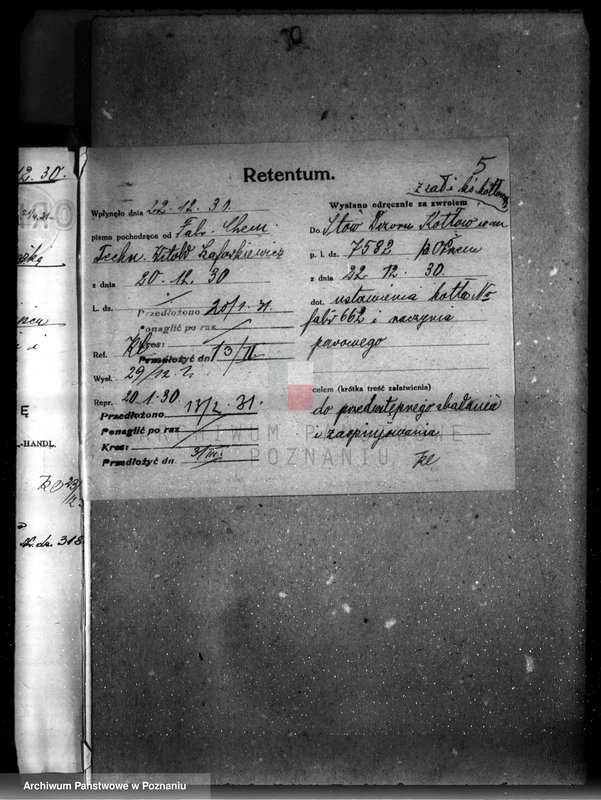 5
Retentum.
z zał i ks. kotłową
Wpłynęło dnia 22.12.30.
pismo pochodzące od Fabr. Chem.
Techn. Witold
z dnia 20.12.30
L. dz.
Przedłożono 20/1.31.
Ponaglić po raz
Kres:
Ref. Kl Przedłożyć dn. 13/II
Wysł. 29/12
Repr. 20.1.30.
Przedłożono 13/2.31.
Ponaglić po raz
Kres:
Przedłożyć dn
Wysłano odręcznie za zwrotem
Do Stow Dozoru Kotłów w m
p. l. dz. 7532
z dnia 22 12 30.
dot. ustawienia kotła No
fabr 662 i naczynia
parowego
celem (krótka treść załatwienia)
do przedwstępnego zbadania
i zaopinjowania
Kl
12.30.
-HANDL.
318
ARCHIWUM PAŃSTWOWE
W POZNANIU
Archiwum Państwowe w Poznaniu